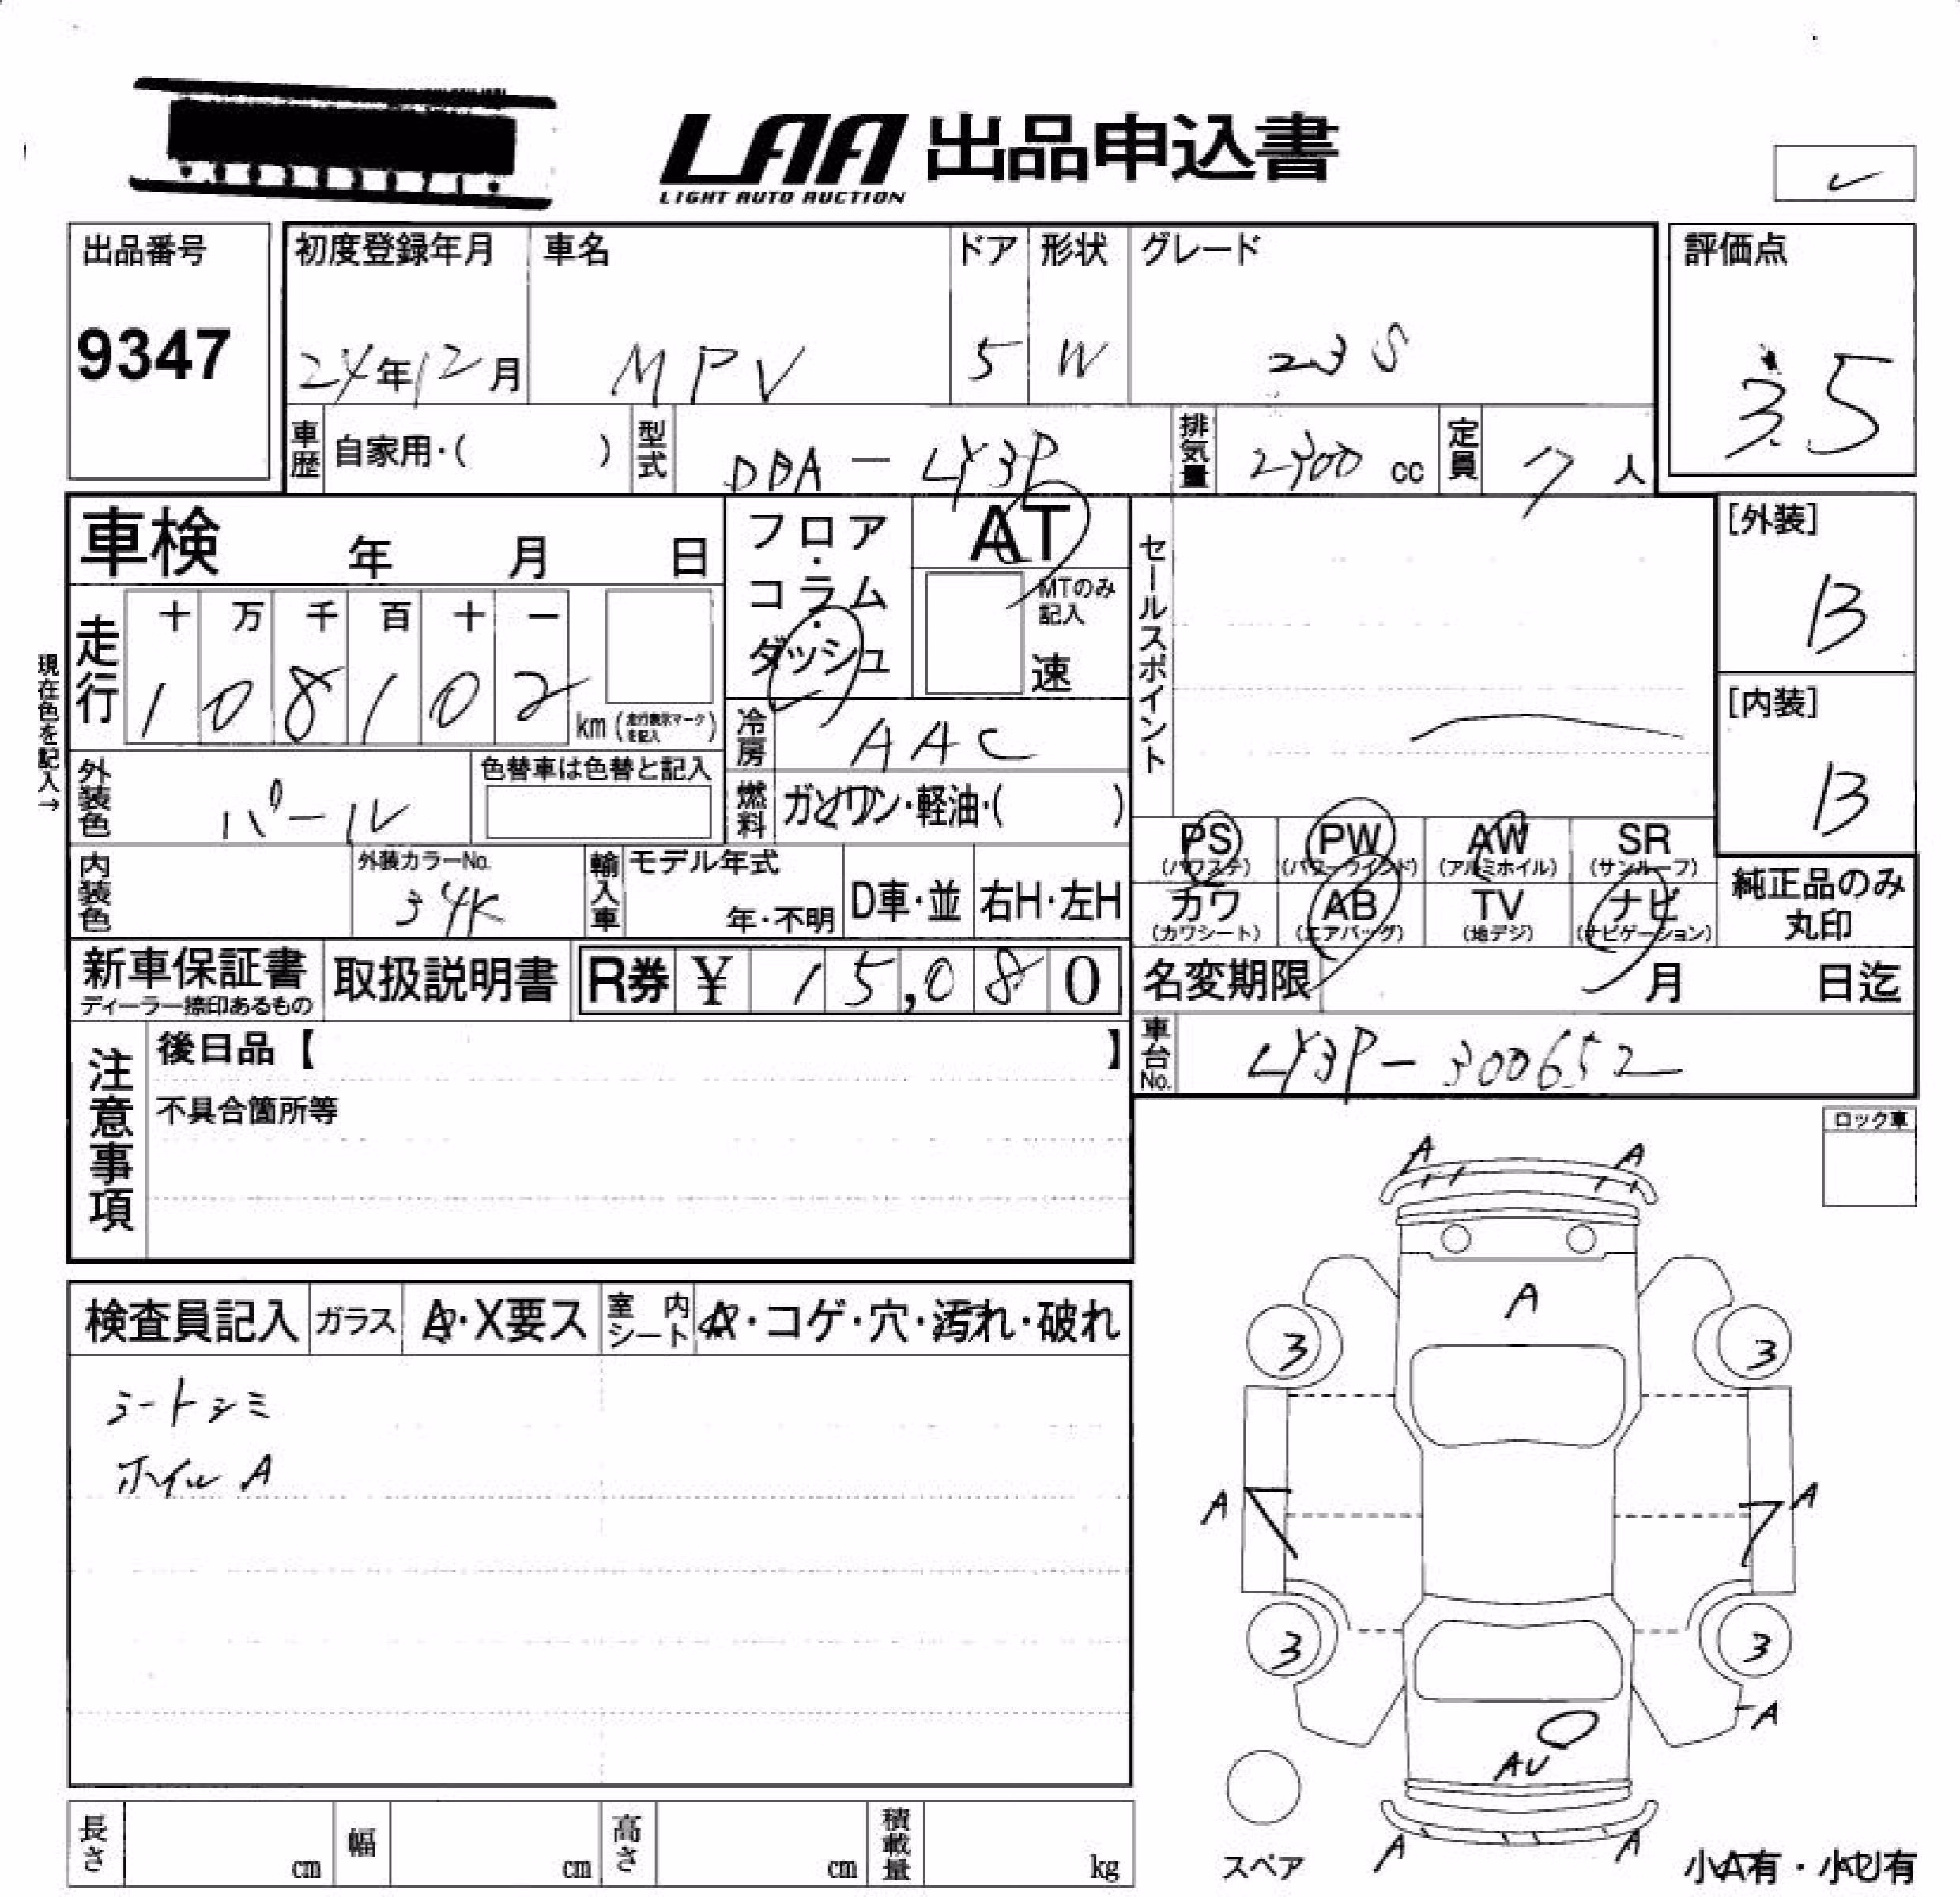 LAA 出品申込書
LIGHT AUTO AUCTION
出品番号
9347
初度登録年月
24年12月
車名
MPV
ドア
5
形状
W
グレード
23S
評価点
3.5
車歴
自家用・( )
型式
DBA-LY3P
排気量
2300 cc
定員
7人
車検 年 月 日
フロア・コラム・ダッシュ
AT
MTのみ記入
速
セールスポイント
[外装]
B
[内装]
B
現在色を記入→
走行
十 万 千 百 十 一
1 0 8 1 0 2 km (走行表示マークを記入)
冷房
AAC
外装色
パール
色替車は色替と記入
燃料
ガソリン・軽油・( )
内装色
外装カラーNo.
34K
輸入車
モデル年式
年・不明
D車・並
右H・左H
PS
(パワステ)
PW
(パワーウインド)
AW
(アルミホイル)
SR
(サンルーフ)
カワ
(カワシート)
AB
(エアバッグ)
TV
(地デジ)
ナビ
(ナビゲーション)
純正品のみ
丸印
新車保証書
ディーラー捺印あるもの
取扱説明書
R券 ¥ 15,080
名変期限 月 日迄
車台No.
LY3P-300652
注意事項
後日品【 】
不具合箇所等
ロック車
検査員記入
ガラス
A・X要ス
室内シート
A・コゲ・穴・汚れ・破れ
シートシミ
ホイルA
A A
A
3 3
A A
3 3
A
AU
A A
スペア
小A有・小U有
長さ cm
幅 cm
高さ cm
積載量 kg